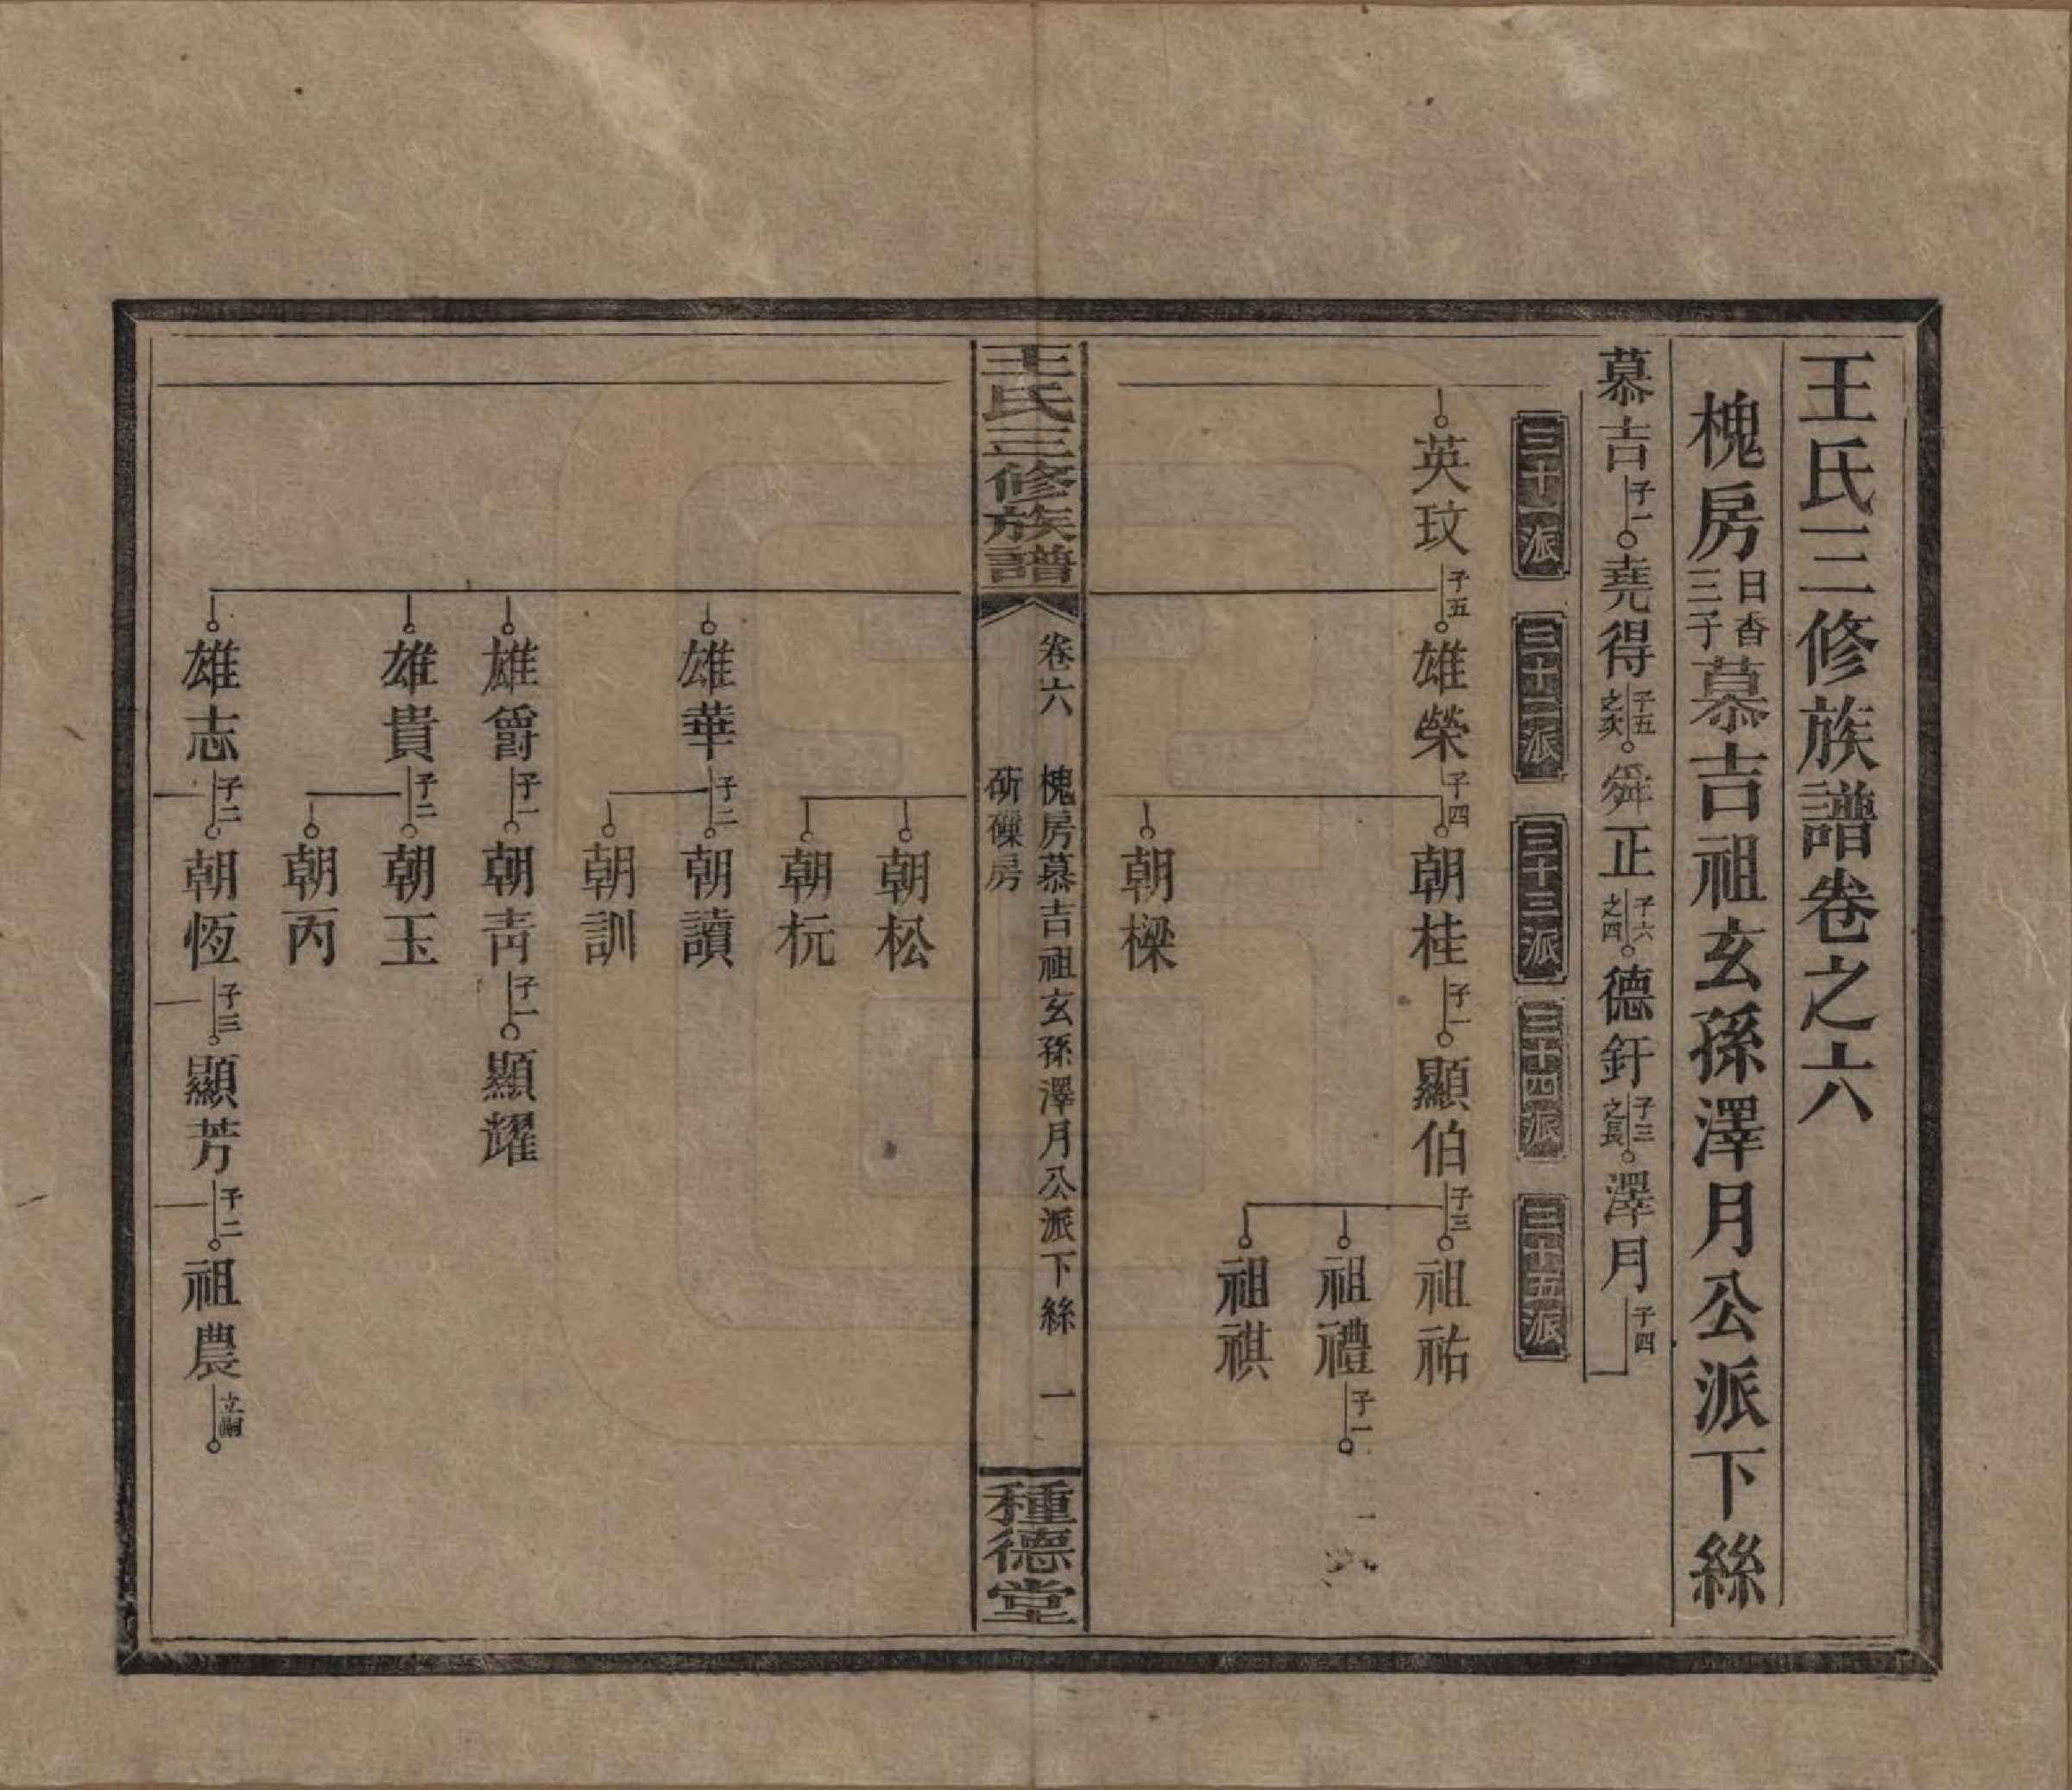 王氏三修族譜卷之六
槐房日香三子慕吉祖玄孫澤月公派下絲
慕吉子一堯得子五之次舜正子六之四德釪子三之長澤月子四
三十一派
三十二派
三十三派
三十四派
三十五派
英玟子五雄榮子四朝桂子一顯伯子三祖祐
祖禮子一
祖祺
朝樑
王氏三修族譜
卷六
槐房慕吉祖玄孫澤月公派下絲
房
一
種德堂
朝松
朝杬
雄華子二朝讀
朝訓
雄爵子一朝靑子一顯耀
雄貴子二朝玉
朝丙
雄志子二朝恆子三顯芳子二祖農立嗣